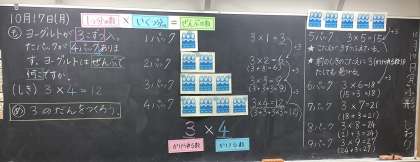 10月17日(月)
1つ分の数 × いくつ分 = ぜんぶの数
も ヨーグルトが3こずつ入っ
たパックが4パックありま
す。ヨーグルトはぜんぶで
何こですか。
(しき) 3×4=12
め 3のだんをつくろう。
1パック
2パック
3パック
4パック
3×1=3
3×2=6
(3+3=6)
3×3=9
3×4=12
3×4
かけられる数
かける数
5パック 3×5=15
6パック 3×6=18
(15+3=18)
7パック 3×7=21
(18+3=21)
8パック 3×8=24
(21+3=24)
9パック 3×9=27
(24+3=27)